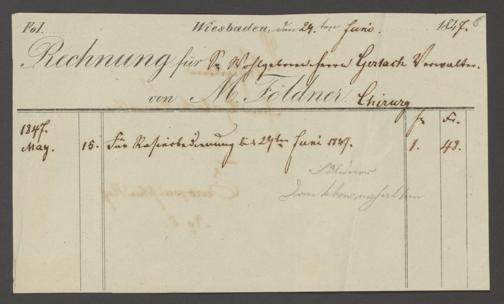 Fol. Wiesbaden, den 24ten Juni. 1847.
Rechnung für Sr Wohlgeboren Herrn Gerlach Verwalter.
von M. Földner. Chirurg
fr Xr.
1847.
May. 15. Für Rasierbedienung bis 24ten Juni 1847. 1. 48.